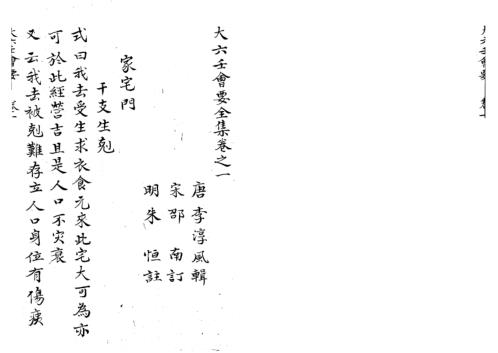 大六壬會要全集卷之一
唐李淳風輯
宋邵南訂
明朱恒註
家宅門
干支生剋
式曰我去受生求衣食元來此宅大可為亦
可於此經營吉且是人口不灾衰
又云我去被剋難存立人口身位有傷痍
大六壬會要